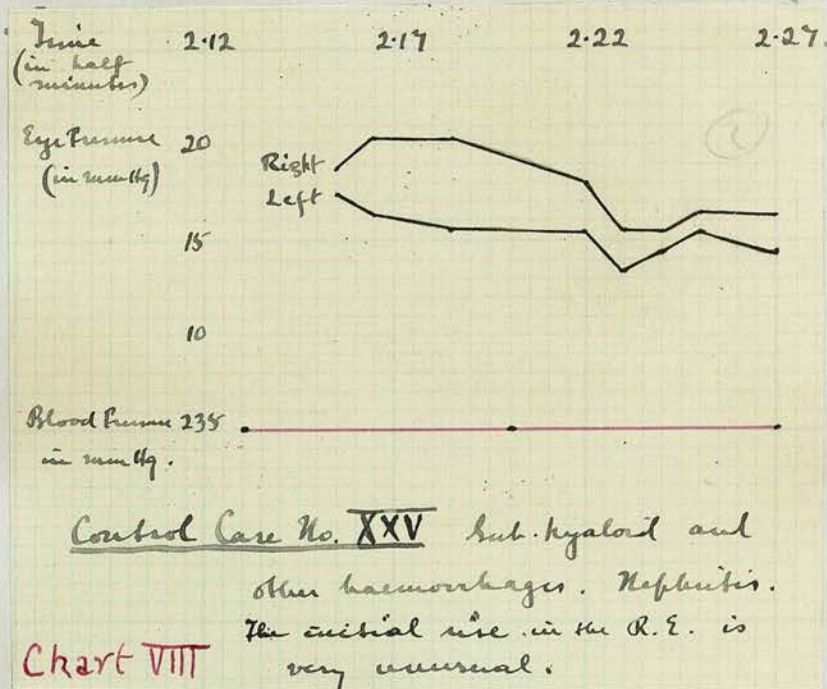 Time 2.12 2.17 2.22 2.27
(in half
minutes)
Eye Pressure 20
(in mm Hg)
Right
Left
15
10
Blood Pressure 235
in mm Hg.
Control Case No. XXV Sub-hyaloid and
other haemorrhages. Nephritis.
The initial rise in the R.E. is
very unusual.
Chart VIII